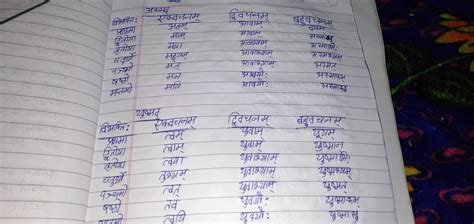 अस्मद्
विभक्ति: एकवचनम् द्विवचनम् बहुवचनम्
प्रथमा अहम् आवाम् वयम्
द्वितीया माम् आवाम्
तृतीया मया आवाभ्याम् अस्माभि:
चतुर्थी मह्यम् आवाभ्याम्
पञ्चमी मत् आवाभ्याम् अस्मत्
षष्ठी मम आवयो:
सप्तमी मयि आवयो: अस्मासु
युष्मद्
विभक्ति: एकवचनम् द्विवचनम् बहुवचनम्
प्रथमा त्वम् युवाम् यूयम्
द्वितीया त्वाम् युवाम् युष्मान
तृतीया त्वया युवाभ्याम् युष्माभि:
चतुर्थी तुभ्यम् युवाभ्याम्
पञ्चमी त्वत् युवाभ्याम् युष्मत
षष्ठी तव युवयो: युष्माकम्
सप्तमी त्वयि युवयो: युष्मासु